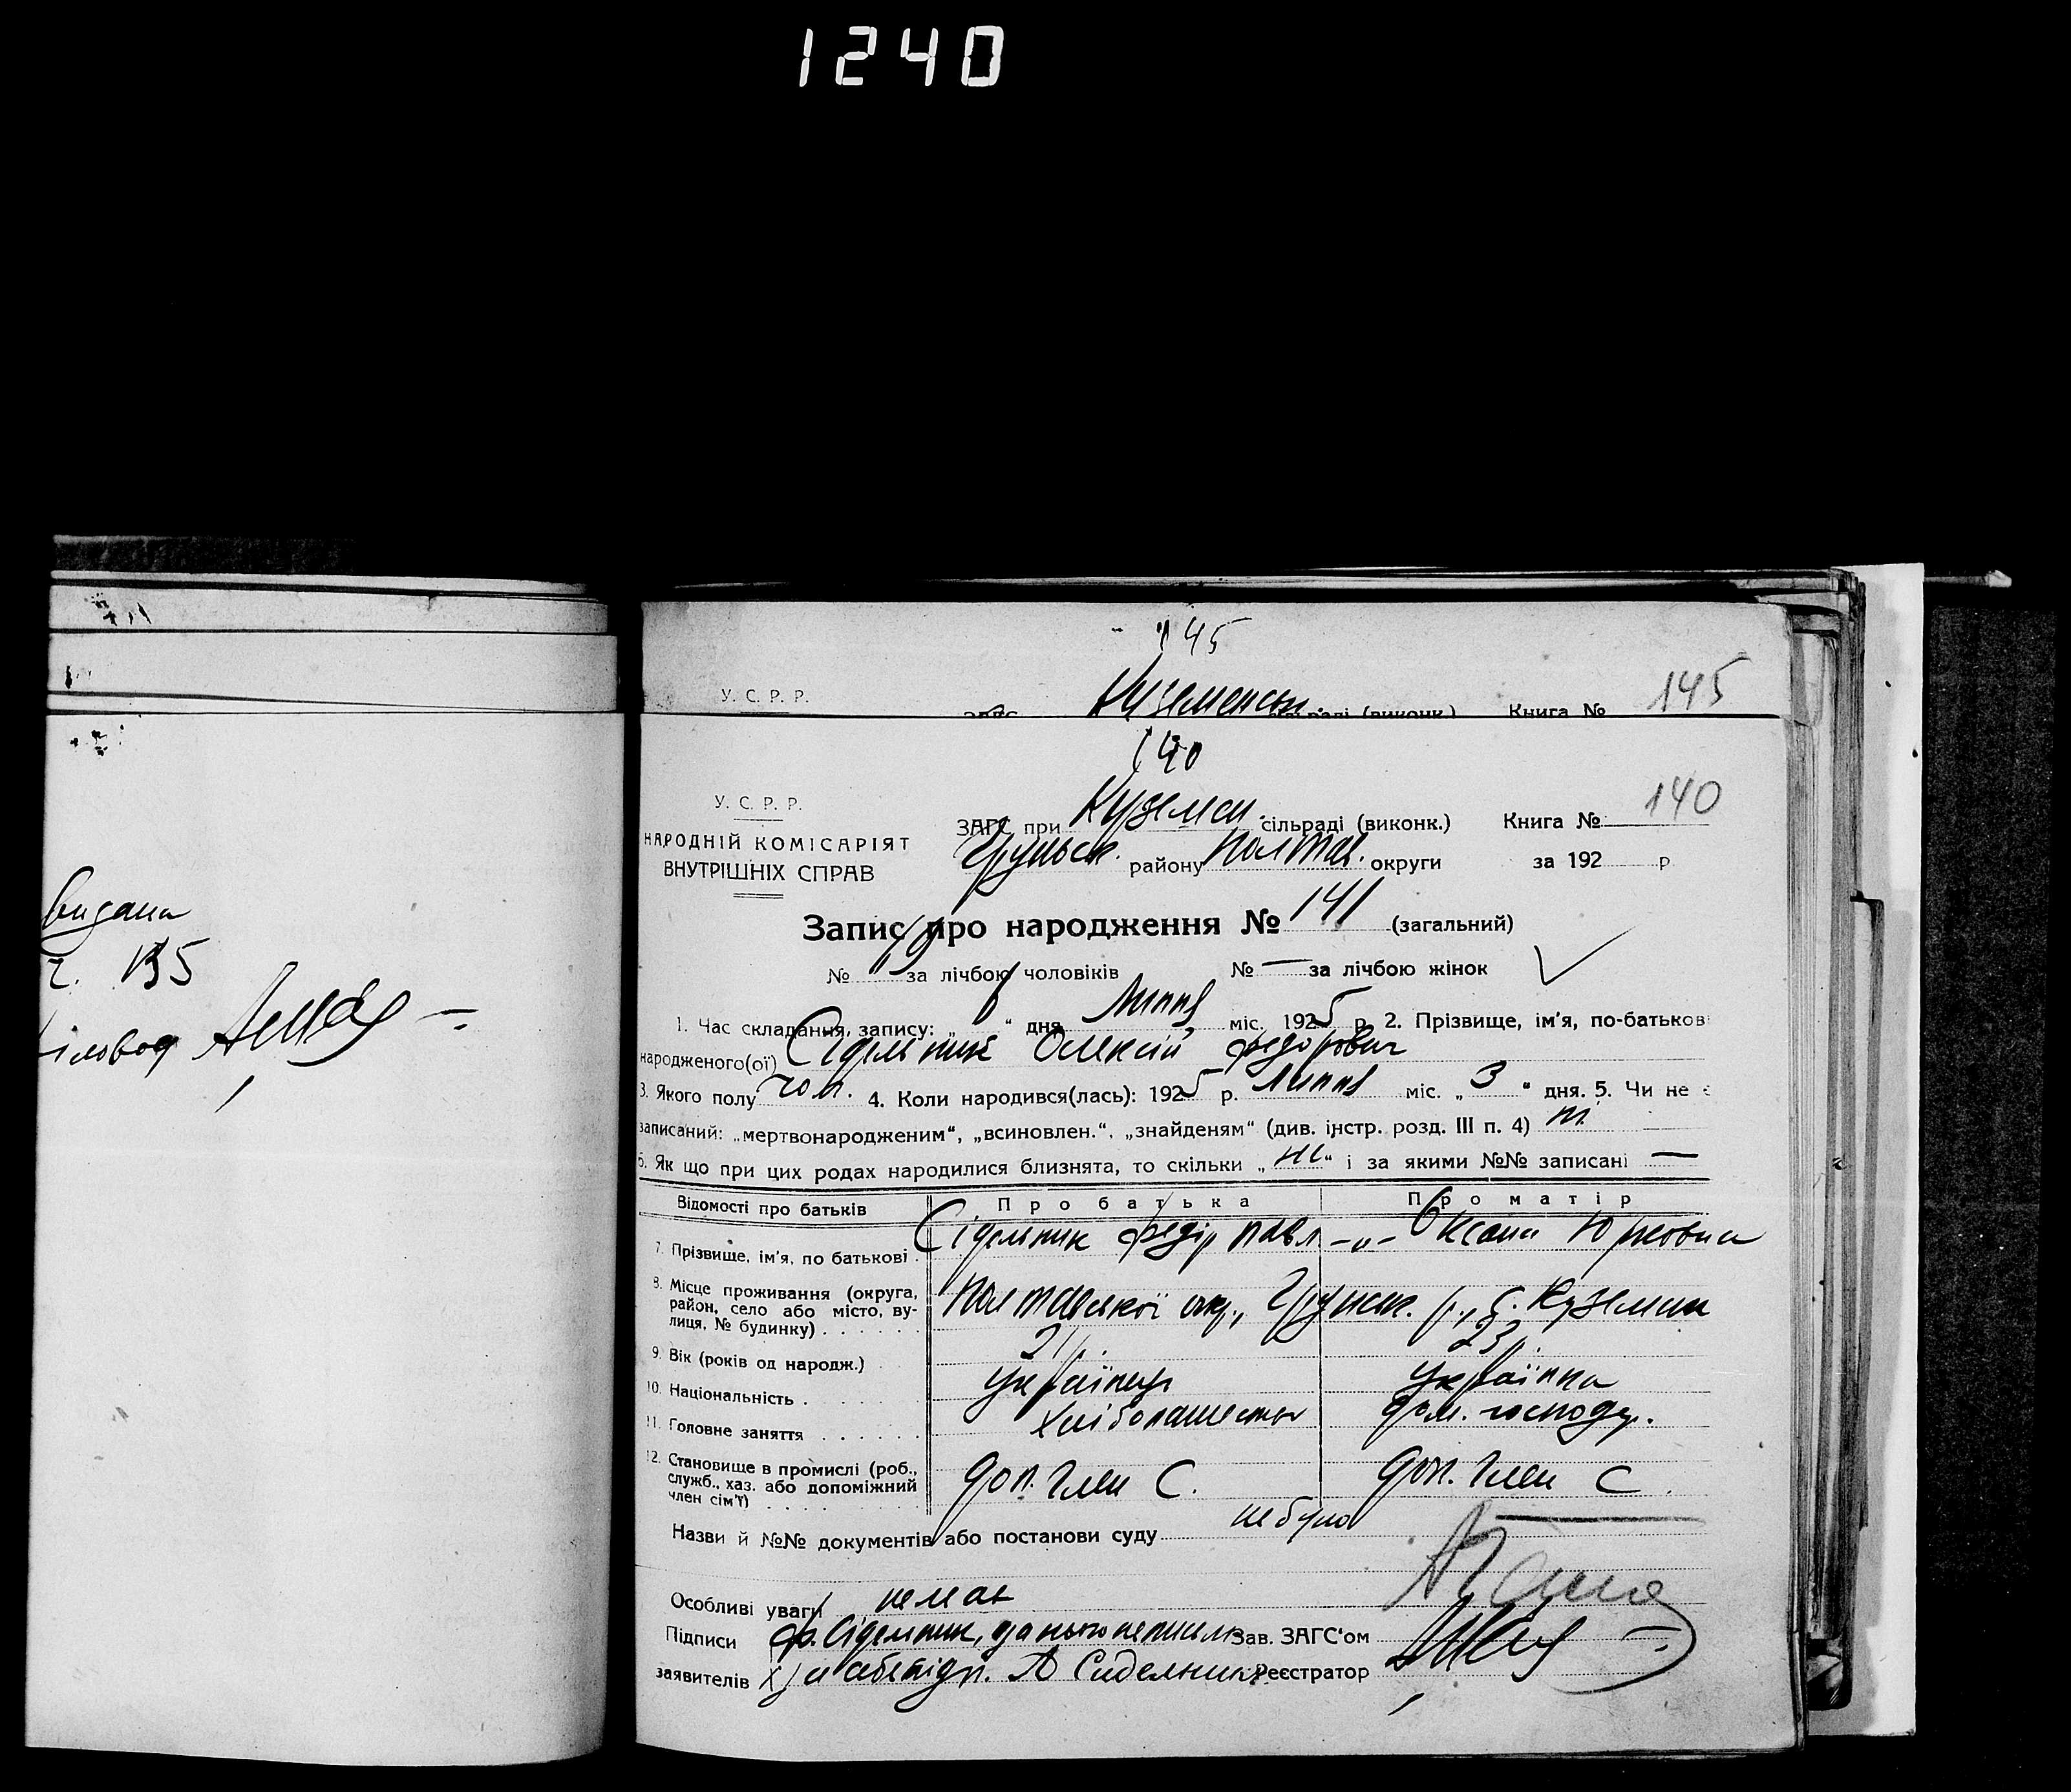 1240
145
У. С. Р. Р.
Куземенськ. сільраді (виконк.) Книга № 145
140
У. С. Р. Р.
НАРОДНІЙ КОМІСАРІЯТ
ВНУТРІШНІХ СПРАВ
ЗАГС при Куземен. сільраді (виконк.) Книга № 140
Груньск. району Полтав. округи за 192 р
Запис про народження № 141 (загальний)
№ за лічбою чоловіків № — за лічбою жінок
1. Час складання, запису: „ 6 “ дня Липня міс. 1925 р. 2. Прізвище, ім'я, по-батькові
народженого(ої) Сідельник Олексій Федорович
3. Якого полу чол. 4. Коли народився(лась): 1925 р. Липня міс. „ 3 “ дня. 5. Чи не є
записаний: „мертвонародженим“, „всиновлен.“, „знайденям“ (див. інстр. розд. III п. 4) ні
6. Як що при цих родах народилися близнята, то скільки „ ні “ і за якими №№ записані —
Відомості про батьків Про батька Про матір
7. Прізвище, ім'я, по батькові . Сідельник Федір Павл. -„- Оксана Юрковна
8. Місце проживання (округа, район, село або місто, вулиця, № будинку) . . . . . . Полтавської окр., Груньск. р., с. Куземин
9. Вік (років од народж.) 21 23
10. Національність . українець українка
11. Головне заняття . . . . . . хліборобство дом. господ.
12. Становище в промислі (роб., служб., хаз. або допоміжний член сім'ї) . . . . доп. член С. доп. член С.
Назви й №№ документів або постанови суду не було
Особливі уваги немає
Підписи Ф. Сідельник, за нього неписьм. Зав. ЗАГС'ом
заявителів А Сидельник Реєстратор
видана
ч. 135
іловод